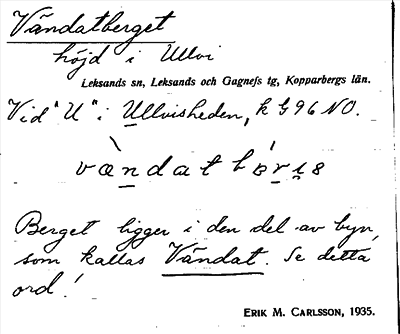 Vändatberget
höjd i Ullvi
Leksands sn, Leksands och Gagnefs tg, Kopparbergs län.
Vid "U" i Ullvisheden, k G 96 NO.
Berget ligger i den del av byn,
som kallas Vändat. Se detta
ord!
ERIK M. CARLSSON, 1935.